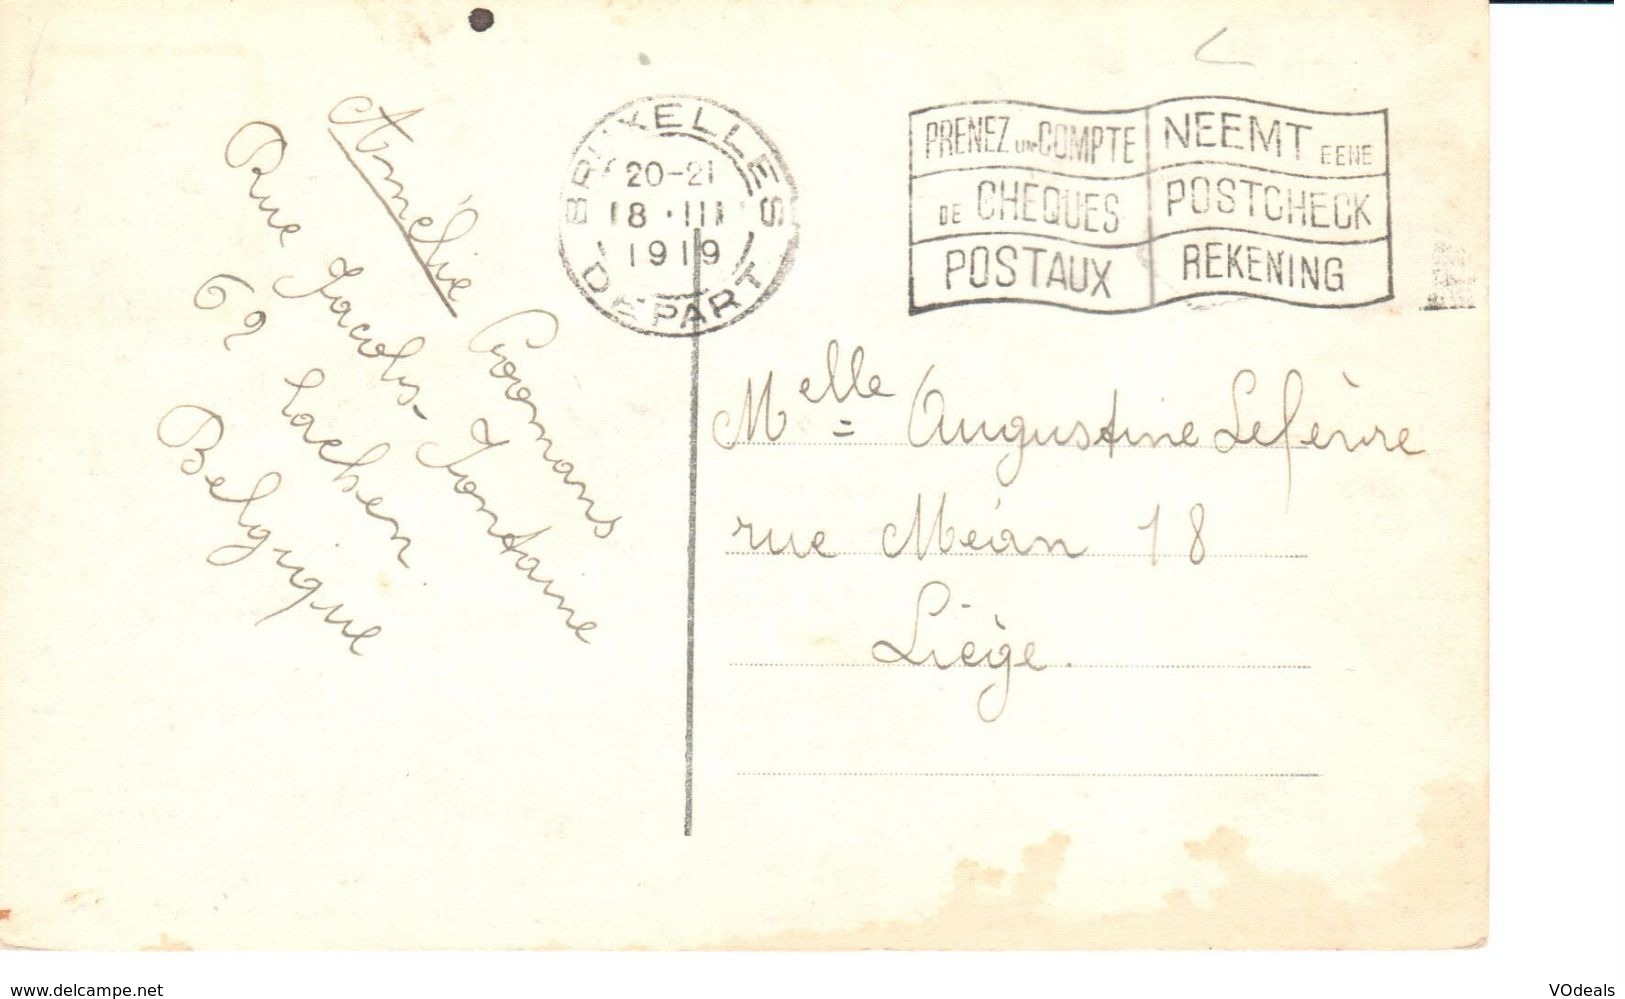 Amélie Coomans
Rue Jacobs-Fontaine
62 Laeken
Belgique
BRUXELLES
20-21
18 · III
1919
DEPART
PRENEZ UN COMPTE
DE CHEQUES
POSTAUX
NEEMT EENE
POSTCHECK
REKENING
Melle Augustine Lefèvre
rue Méan 18
Liège.
www.delcampe.net
VOdeals